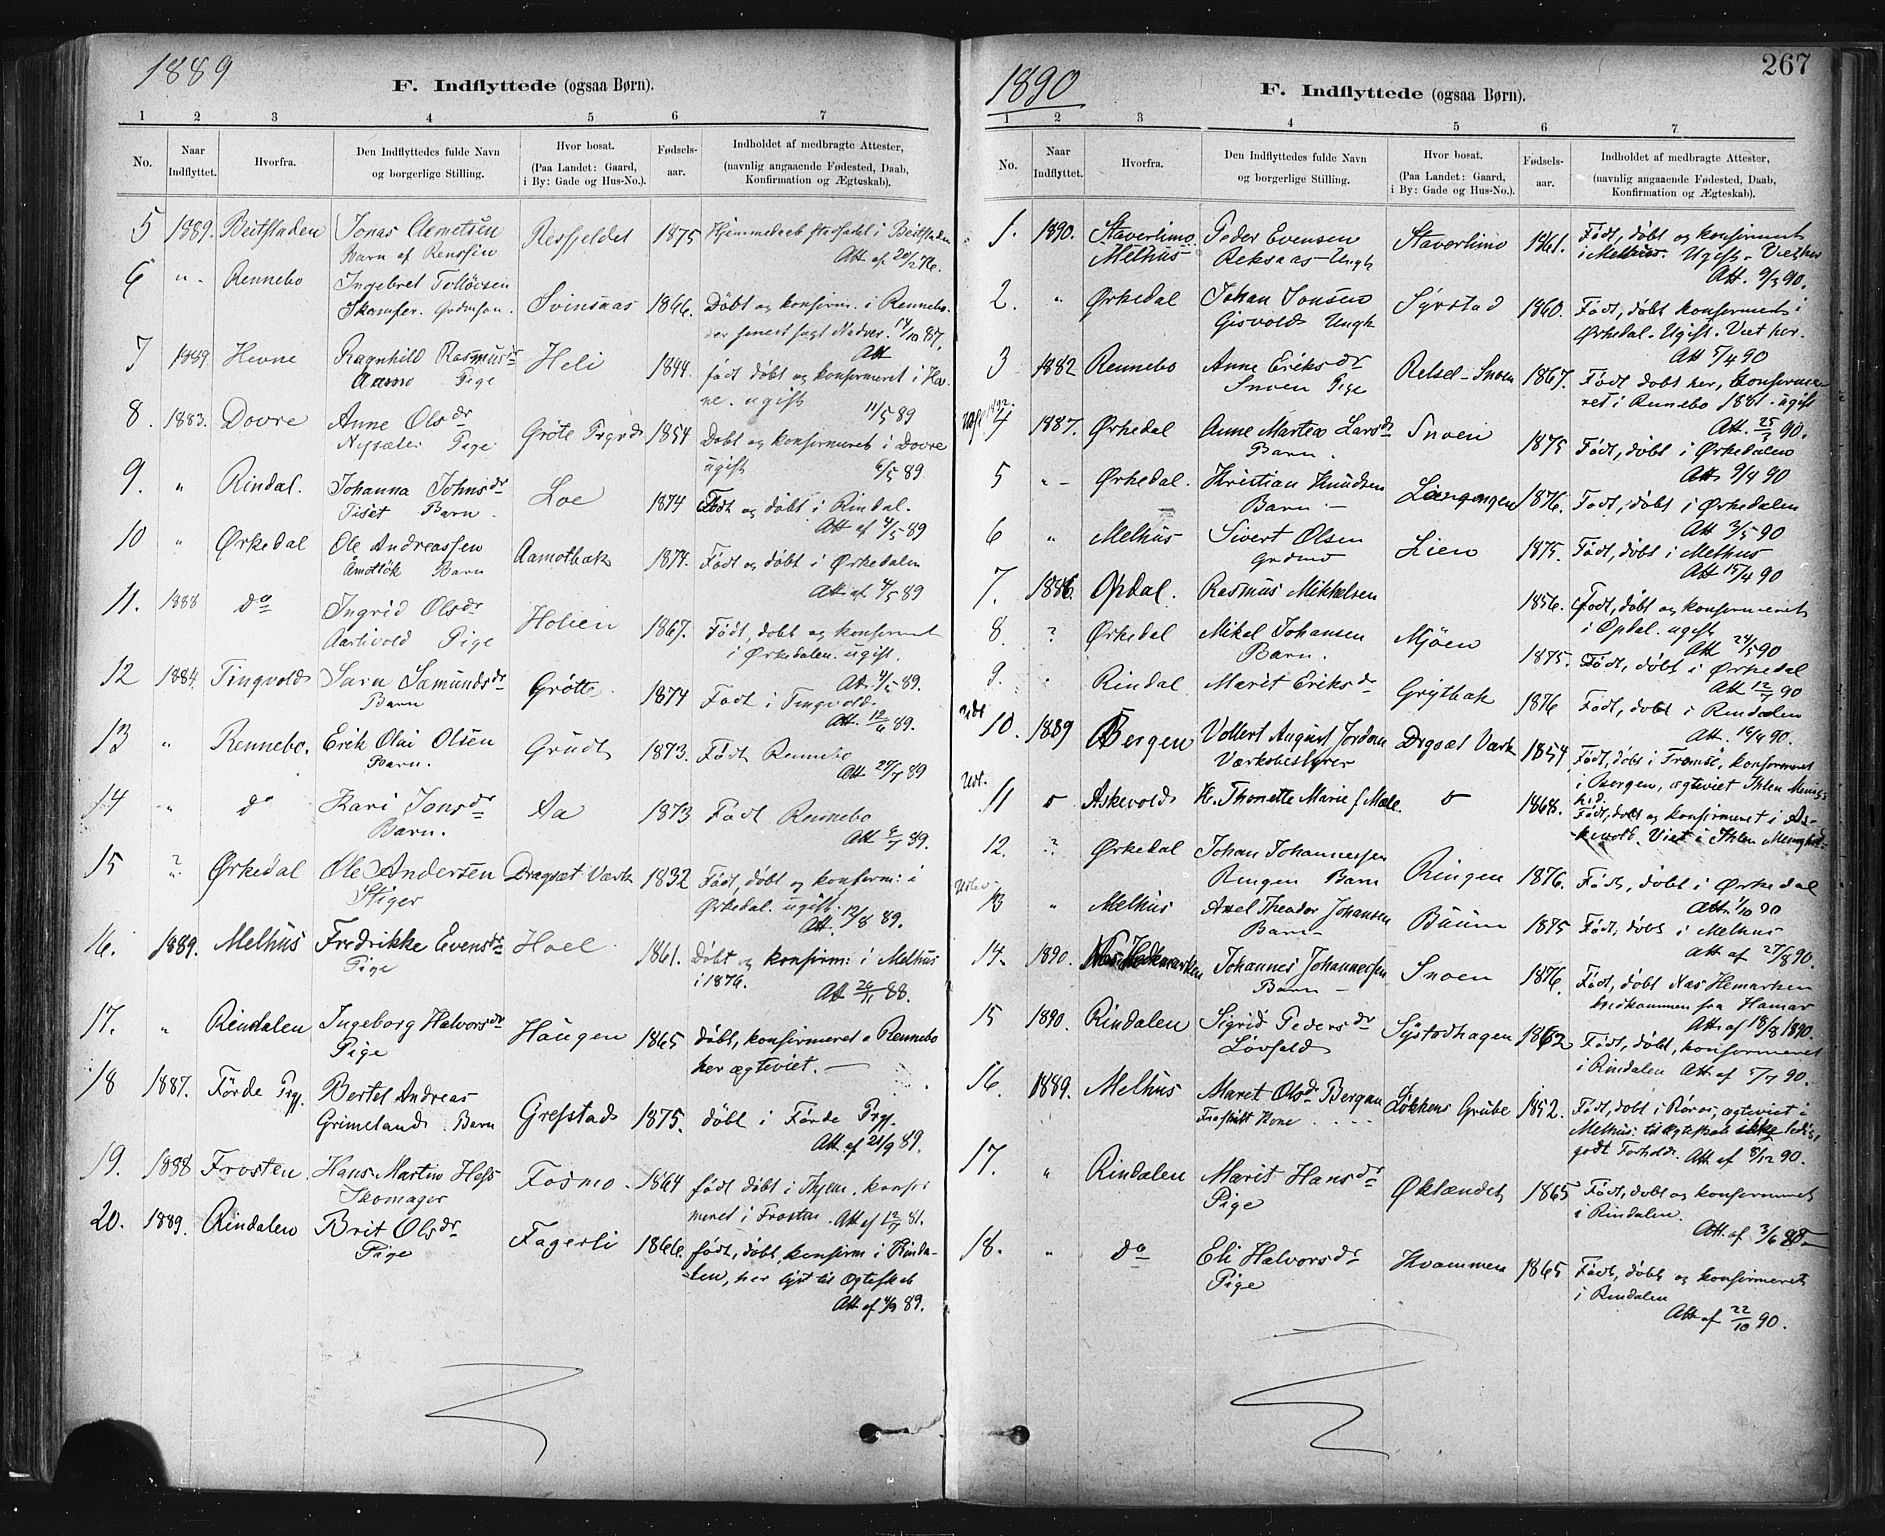 1889
F. Indflyttede (ogsaa Børn).
1 2 3 4 5 6 7
No. Naar Indflyttet. Hvorfra. Den Indflyttedes fulde Navn og borgerlige Stilling. Hvor bosat. (Paa Landet: Gaard, i By: Gade og Hus-No.). Fødsels-aar. Indholdet af medbragte Attester, (navnlig angaaende Fødested, Daab, Konfirmation og Ægteskab).
5 1889. Beitstaden Jonas Clemetsen Resfjeldet 1875 Hjemmedøb stadfæstet i Beitstaden
Barn af Att. af 20/2 76.
6 " Rennebo Ingebret Svinsaas 1866. Døbt og konfirm. i Rennebo.
14/10 87.
7 1889. Hevne Ragnhild Rasmusdr Heli 1844. Att født døbt og konfirmeret i Hev-
Aamo Pige ne. ugift 11/5 89
8. 1883. Dovre Anne Olsdr Grøte 1854 Døbt og konfirmeret i Dovre
Pige ugift 6/5 89
9. " Rindal. Johanna Johnsdr Loe 1874 Født og døbt i Rindal.
Tiset Barn Att af 4/5 89
10 " Ørkedal Ole Andreassen Aamotbak 1874. Født og døbt i Ørkedalen
Barn Att. af 4/5 89
11. 1888 do Ingrid Olsdr Holien 1867. Født, døbt og konfirmeret
Pige i Ørkedalen. ugift.
12 1884. Tingvold Sara Samundsdr Grøtte 1874 Født i Tingvold.
Barn Att. 12/6 89.
13 " Rennebo. Erik Olai Olsen Grudt 1873. Født Rennebo
Barn. Att 27/7 89
14 " do Kari Jonsdr Aa 1873 Født Rennebo
Barn. Att 89.
15 ? Ørkedal Ole Andersen Dragsæt Værk 1832 Født, døbt og konfirm: i
Stiger Ørkedal. ugift. Att. 12/8 89.
16. 1889. Melhus Fredrikke Evensdr Hoel 1861. Døbt og konfirm: i Melhus
Pige i 1876. Att 26/11 88.
17. " Rindalen Ingeborg Halvorsdr Haugen 1865 døbt, konfirmeret Rennebo
Pige her ægteviet.
18 1887. Førde Pgj. Bertel Andreas Grefstad 1875. døbt i Førde Pgj.
Grimeland Barn Att. af 21/9 89.
19. 1888 Frosten Hans Martin Fosmo 1864 født døbt i konfir
Skomager meret i Frosten. Att af 12/7 81.
20. 1889. Rindalen Brit Olsdr Fagerli 1866. født, døbt, konfirm i Rinda-
Pige len, her lyst til Ægteskab
Att af 4/9 89.
267
1890
F. Indflyttede (ogsaa Børn).
1 2 3 4 5 6 7
No. Naar Indflyttet. Hvorfra. Den Indflyttedes fulde Navn og borgerlige Stilling. Hvor bosat. (Paa Landet: Gaard, i By: Gade og Hus-No.). Fødsels-aar. Indholdet af medbragte Attester, (navnlig angaaende Fødested, Daab, Konfirmation og Ægteskab).
1. 1890. Staverlimo Peder Evensen Staverlimo 1861. Født, døbt og konfirmeret
Melhus Reksaas-Ungk i Melhus. Ugift. Viet her
Att. 9/3 90.
2. " Ørkedal Johan Jonsen Syrstad 1860. Født, døbt konfirmeret i
Gisvold Ungk Ørkedal. Ugift. Viet her.
Att 5/4 90
3 1882 Rennebo Anne Eriksdr Retsel-Snoen 1867. Født døbt her, konfirme-
Snoen Pige ret i Rennebo 1881. ugift
Att. 25/3 90.
4 1887. Ørkedal Anne Martea Larsdr Snoen 1875 Født, døbt i Ørkedalen
Barn. Att 9/4 90
5 " Ørkedal. Kristian Knudsen Langengen 1876. Født, døbt i Ørkedalen
Barn Att 3/5 90
6 " Melhus Sivert Olsen Lien 1875. Født, døbt i Melhus
Att 15/4 90
7. 1886. Opdal. Rasmus Mikkelsen 1856. Født, døbt og konfirmeret
i Opdal. ugift
Att 24/5 90
8. ? Ørkedal Mikal Johansen Mjøen 1875. Født, døbt i Ørkedal
Barn. Att 90
9. Rindal Marit Eriksdr Grytbak 1876 Født, døbt i Rindalen
Att. 90.
Udt 10. 1889 Bergen Vollert August Jordan Drgsæt Værk 1854 Født, døbt i Tromsø, konfirmeret
Værksbestyrer i Bergen, ægteviet Ihlen Menig-
hed.
Udt. 11 Askevold Thonette Marie f. Mæle 1868. Født, døbt og konfirmeret i As-
kevold. Viet i Ihlen Menighed.
12. ? Ørkedal Johan Johannessen Ringen 1876. Født, døbt i Ørkedal
Ringen Barn Att. 1/10 90
13 " Melhus Axel Theodor Johansen Buum 1875 Født, døbt i Melhus
Barn Att af 27/8 90.
14. 1890. Johannes Johannessen Snoen 1876. Født, døbt Næs Hemarken
Barn hidkommen fra Hamar
Att af 18/8 1890.
15 1890. Rindalen Sigrid Pedersdr Systadhagen 1862 Født, døbt, konfirmeret
Løvfald i Rindalen Att af 5/7 90.
16. 1889. Melhus Maret Olsdr Bergan Løkkens Grube 1852. Født, døbt i Røros, ægteviet i
Fraskilt Kone Melhus. til Ægteskab ikke ledig,
godt Forhold. Att af 8/12 90.
17. " Rindalen Marit Hansdr Øklændet 1865 Født, døbt og konfirmeret
Pige i Rindalen.
18. " do Eli Halvorsdr Kvammen 1865 Født, døbt og konfirmeret
Pige i Rindalen
Att af 22/10 90.